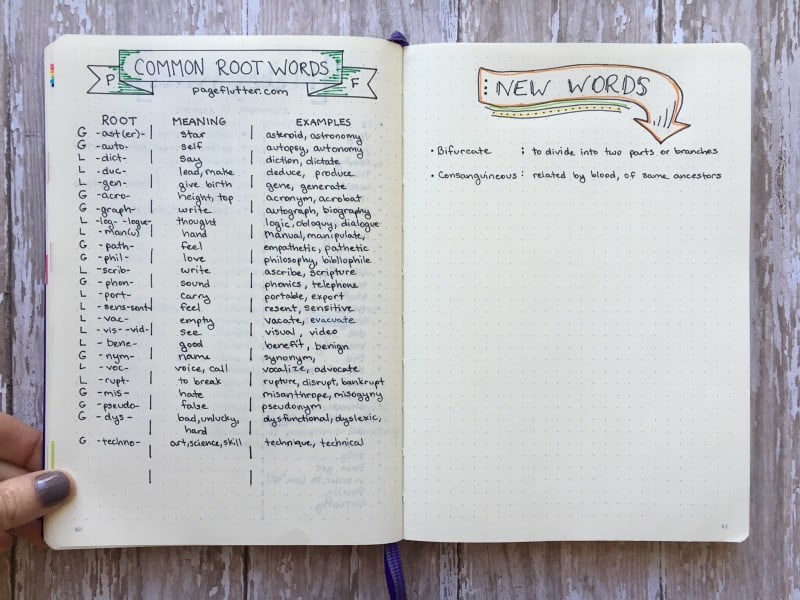 P COMMON ROOT WORDS F
pageflutter.com
ROOT MEANING EXAMPLES
G -ast(er)- star asteroid, astronomy
G -auto- self autopsy, autonomy
L -dict- say diction, dictate
L -duc- lead, make deduce, produce
L -gen- give birth gene, generate
G -acro- height, top acronym, acrobat
G -graph- write autograph, biography
L -log- -logue- thought logic, obloquy, dialogue
L -man(u) hand manual, manipulate,
G -path- feel empathetic, pathetic
G -phil- love philosophy, bibliophile
L -scrib- write ascribe, scripture
G -phon- sound phonics, telephone
L -port- carry portable, export
L -sens-sent feel resent, sensitive
L -vac- empty vacate, evacuate
L -vis- -vid- see visual, video
L -bene- good benefit, benign
G -nym- name synonym,
L -voc- voice, call vocalize, advocate
L -rupt- to break rupture, disrupt, bankrupt
G -mis- hate misanthrope, misogyny
G -pseudo- false pseudonym
G -dys- bad, unlucky, dysfunctional, dyslexic,
hard
G -techno- art, science, skill technique, technical
60
NEW WORDS
• Bifurcate : to divide into two parts or branches
• Consanguineous : related by blood, of same ancestors
61